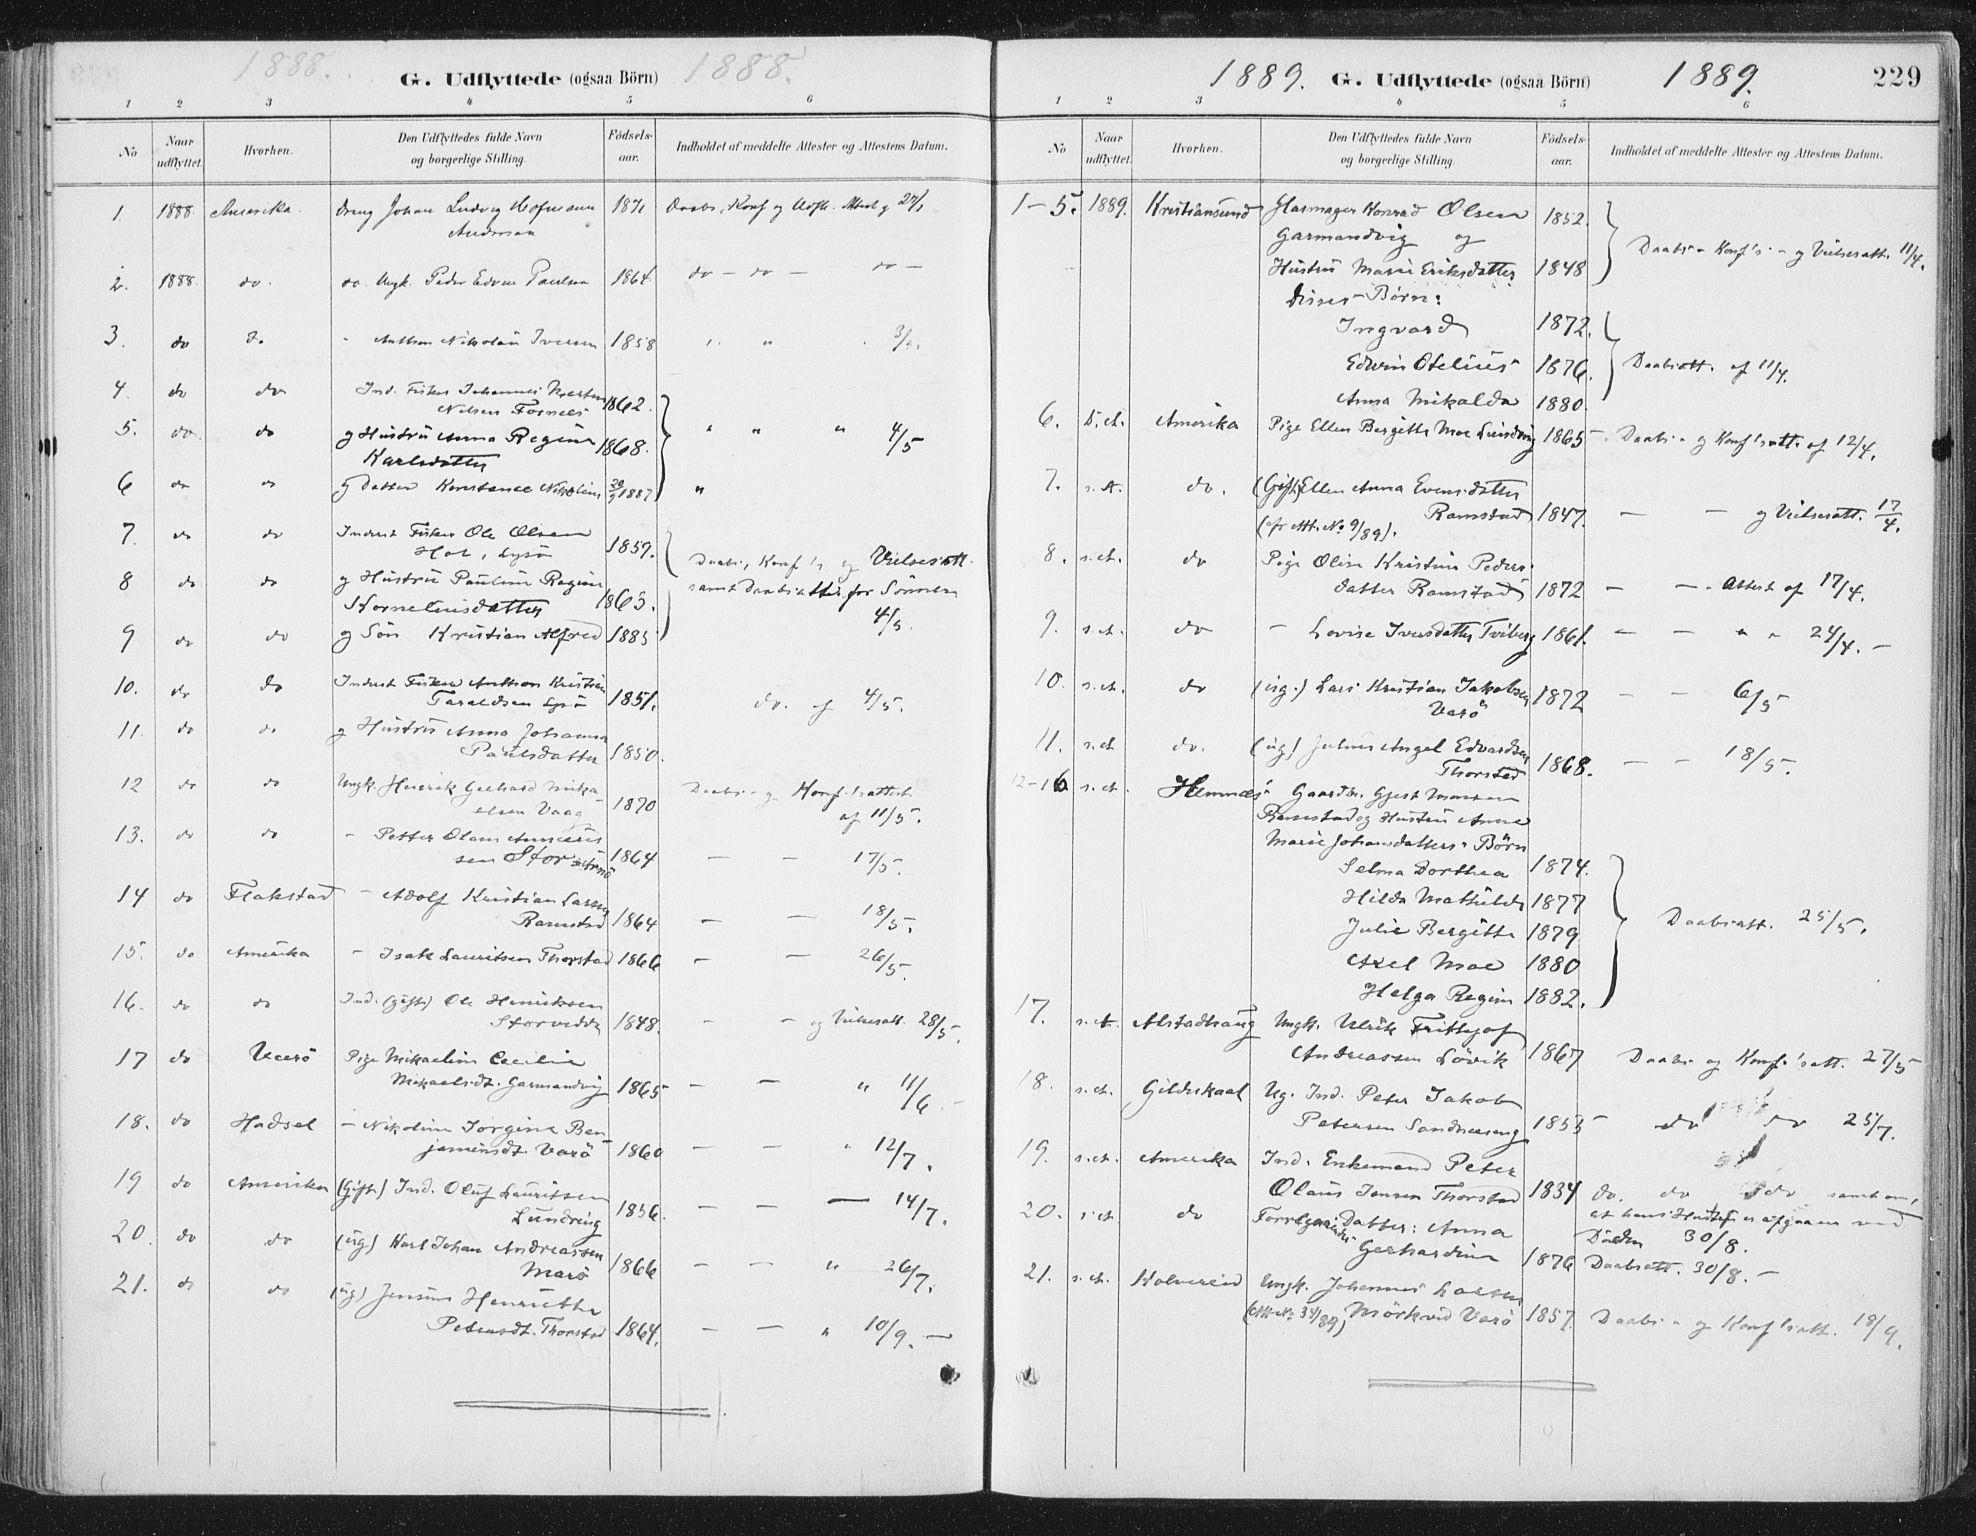 1888.
G. Udflyttede (ogsaa Börn)
1888.
1 2 3 4 5 6
No
Naar udflyttet.
Hvorhen.
Den Udflyttedes fulde Navn og borgerlige Stilling.
Födsels-aar.
Indholdet af meddelte Attester og Attestens Datum.
1. 1888. Amerika. dreng Johan Ludvig Hofmann 1871 Daabs, Konf og
Andersen
2. 1888. do. do. Ungk. Peder Edvin Paulsen 1864. do — do — do —
3. do do - Anthon Nikolai Iversen 1858 " " "
4. do do Ind. Fisker Johannes Morten
Nilsen Fornes 1862.
5. do. do g Hustru Anna Regine 1868. " " " 4/5
Karlsdatter
6 do do g Datter Konstance Nikoline 1887 "
7. do do Inderst Fisker Ole Olsen
Hol, Lysö 1859. Daabs, Konf's og Vielsesatt.
8 do do g Hustru Pauline Regine samt Daabsatter for Sönnen
Korneliusdatter 1863. 4/5.
9 do do g Sön Kristian Alfred 1885
10. do do Inderst Fisker Anthon Kristian
Taraldsen Lysö 1851. do. of 4/5.
11. do do g Hustru Anna Johanna
Paulsdatter 1850.
12 do do Ungk. Henrik Gerhard Mika-
elsen Vaag 1870 Daabs- og Konf'sattest
af 11/5.
13. do do - Petter Olaus
sen Stor 1864 — — 17/5.
14 do Flakstad - Adolf Kristian Larsen
Ramstad 1864 — — 18/5.
15. do Amerika - Isak Lauritsen Thorstad 1866 — — 26/5.
16. do do Ind. (gift) Ole Henriksen
1848. — — og Vielsesatt. 28/5.
17 do Værö Pige Mikaeline Cecilie
Mikaelsdt. Garmandvig 1865 — — " 11/6. —
18. do Hadsel - Nikoline Jorgine Ben-
jaminsdt. Varö 1860 — — " 12/7.
19 do Amerika (Gift) Ind. Oluf Lauritsen
Lundring 1856. — — — 14/7.
20. do do (ug) Karl Johan Andreassen
Marö 1866 — — " 26/7.
21. do do (ug) Jensine Henriette
Petersdt. Thorstad 1864. — — " 10/9. —
1889.
G. Udflyttede (ogsaa Börn)
1889.
229
1 2 3 4 5 6
No
Naar udflyttet.
Hvorhen.
Den Udflyttedes fulde Navn og borgerlige Stilling.
Födsels-aar.
Indholdet af meddelte Attester og Attestens Datum.
1-5. 1889. Kristiansund Glasmager Konrad Olsen 1852.
Garmandvig og Daabs- Konf's- og Vielsesatt. 11/4.
Hustru Marie Eriksdatter 1848
Disses Börn:
Ingvard 1872.
Edvin Otelius 1876. Daabsatt. af 11/4.
Anna Mikalda 1880.
6. s.A. Amerika Pige Ellen Bergitte Moe Lundring 1865 Daabs- og Konf'satt. af 12/4.
7. s.A. do. (Gift) Ellen Anna Evensdatter
Ramstad 1847. — — og Vielsesatt. 17/4.
(cfr Att. No 9/89).
8. s.A. do Pige Oline Kristine Peders-
datter Ramstad 1872 — — Attest af 17/4.
9. s.A. do - Lovise Iversdatter Tviberg 1861. — — " " 24/4. —
10. s.A. do (ug.) Lars Kristian Jakobsen
Varö 1872 — — 6/5
11. s.A do. (ug) Julius Angel Edvardsen
Thorstad 1868. — — 18/5.
12-16 s.A. Hemnæs Gaardbr. Gjert Monsen
Ramstad og Hustru Anne
Marie Johansdatters Börn
Selma Dorthea 1874.
Hilda Mathilde 1877
Julie Bergitte 1879 Daabsatt. 25/5.
Axel Moe 1880
Helga Regine 1882.
17. s.A. Alstadhaug Ungk. Ulrik Frittjof
Andreassen Lövik 1867 Daabs- og Konf'satt. 27/5
18. s.A. Gildeskaal Ug. Ind. Peter Jakob
Petersen Sandværeng 1855 do do 25/7.
19. s.A. Amerika Ind. Enkemand Peter
Olaus Jensen Thorstad 1834 do. do do samt om,
at hans Hustru er afgaaen ved
Döden 30/8.
20. s.A do Forrgaaendes Datter: Anna
Gerhardine 1876 Daabsatt. 30/8. —
21. s.A. Kolvereid Ungk. Johannes Larsen
(Att. No. 34/89) Mörkved Varö 1857. Daabs- og Konf'satt. 18/9.